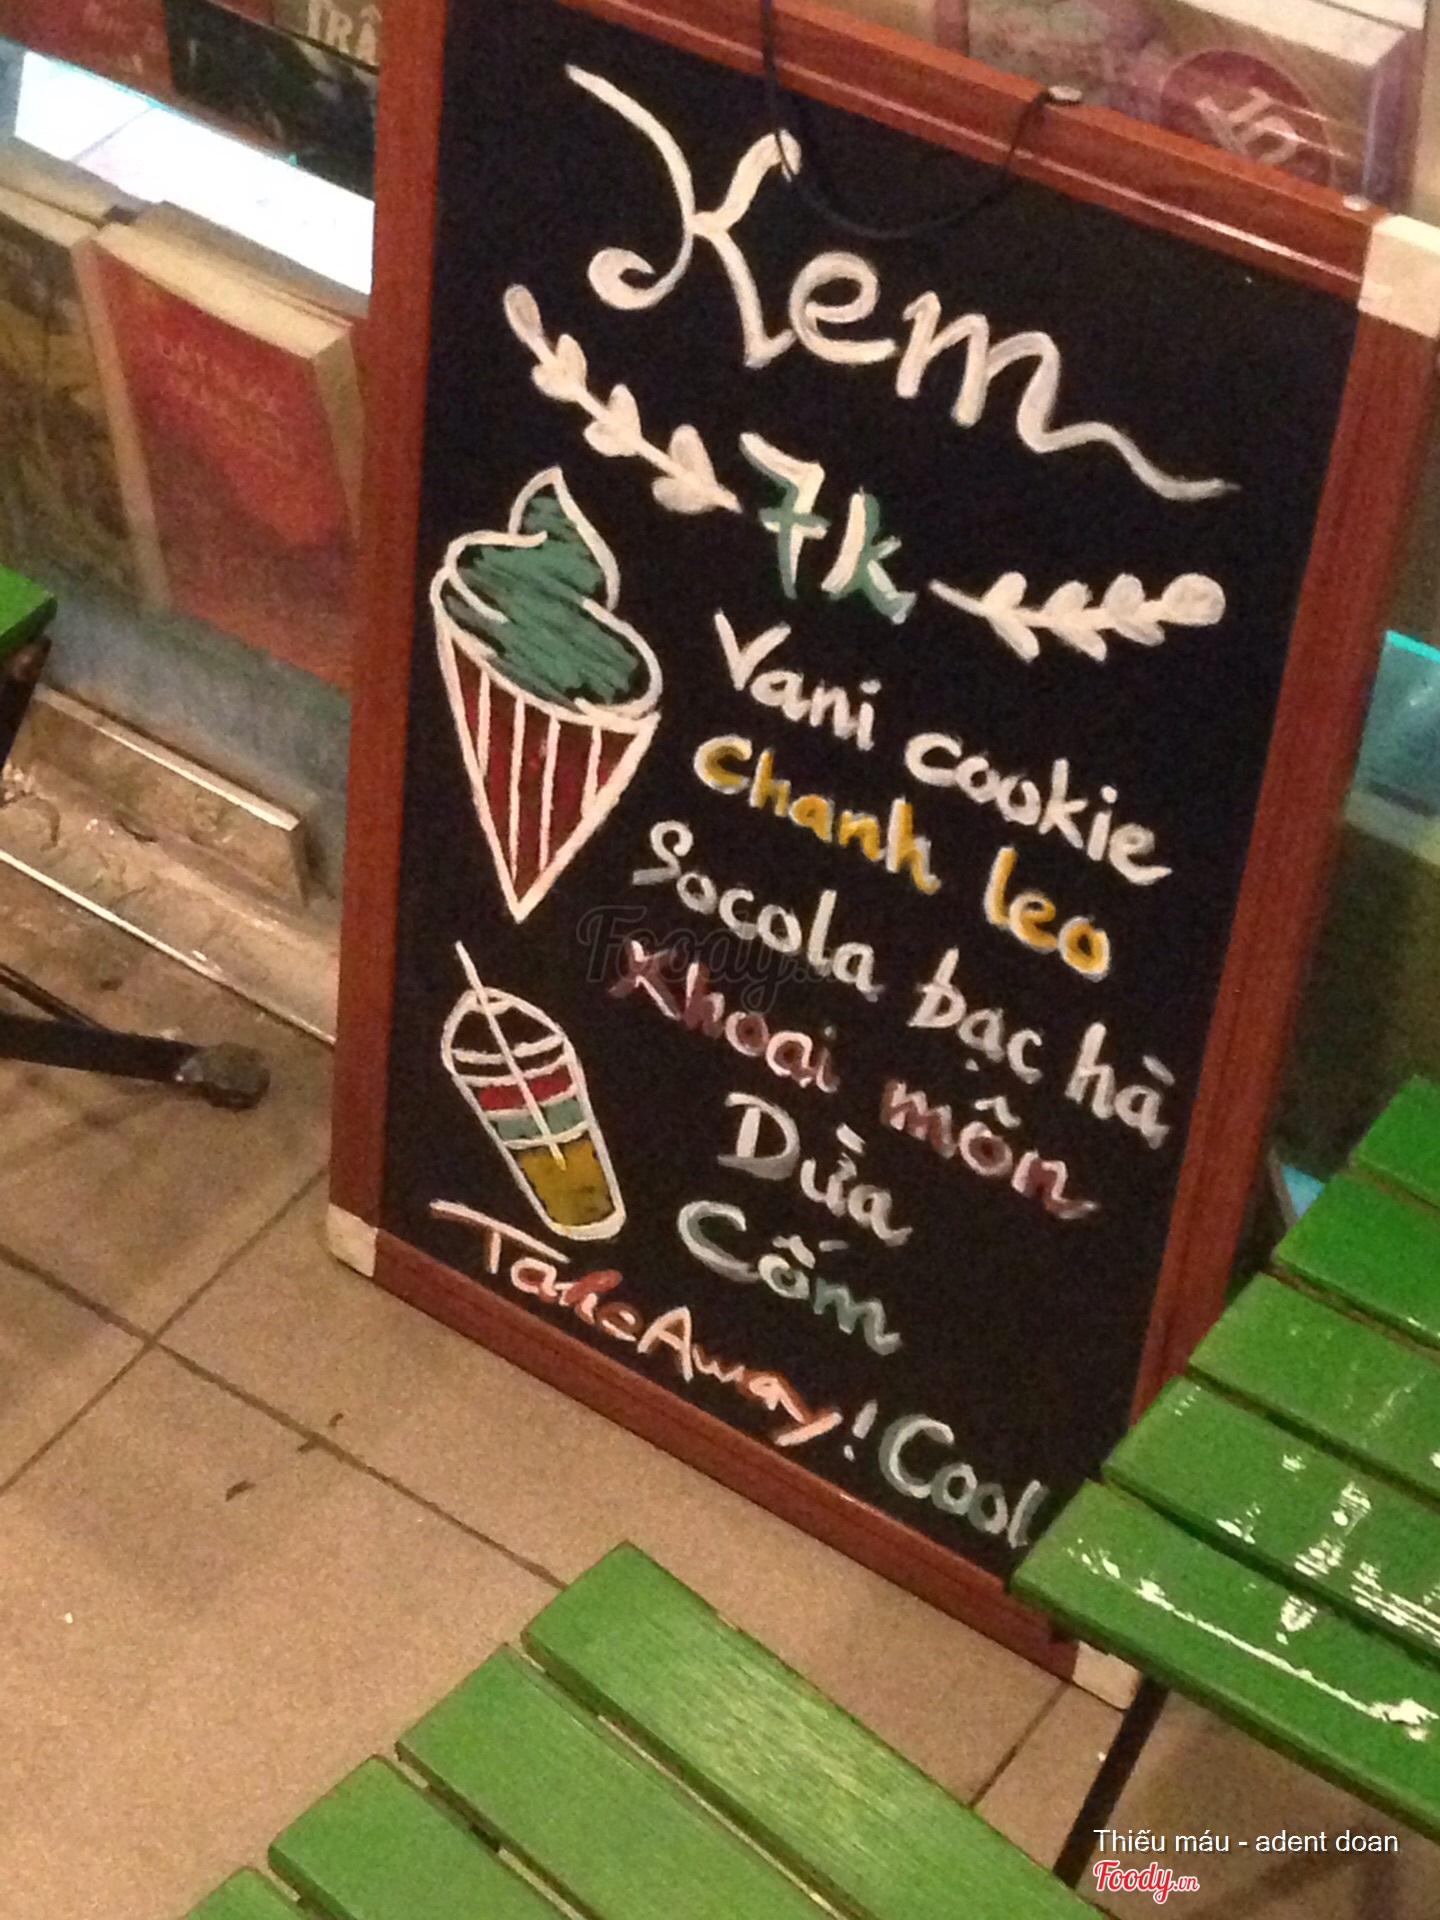 TRÂ
Kem
7k
Vani cookie
chanh leo
Socola bạc hà
Khoai môn
Dừa
Cốm
TakeAway! Cool
Foody.vn
Thiếu máu - adent doan
Foody.vn